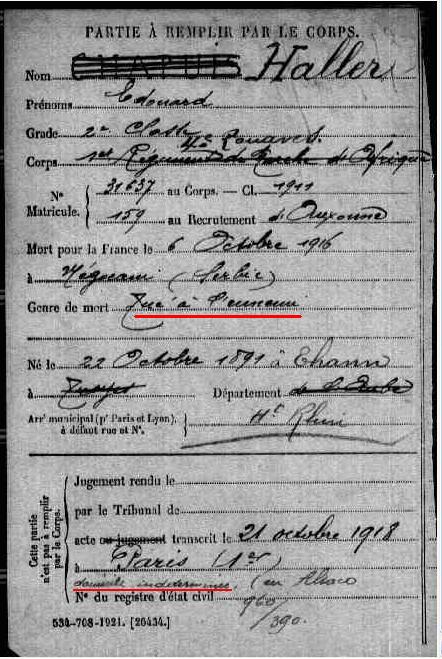 PARTIE À REMPLIR PAR LE CORPS.
Nom CHAPUIS Haller
Prénoms Edouard
Grade 2e Classe
4e Zouaves
Corps 1er Régiment de Marche d'Afrique
No Matricule. 31637 au Corps. — Cl. 1911
159 au Recrutement d'Auxonne
Mort pour la France le 6 Octobre 1916
à (Serbie)
Genre de mort Tué à l'ennemi
Né le 22 Octobre 1891 à Thann
à Département de l'Aube
Arrt municipal (pr Paris et Lyon), à défaut rue et No. Ht Rhin
Cette partie n'est pas à remplir par le Corps.
Jugement rendu le
par le Tribunal de
acte ou jugement transcrit le 21 octobre 1918
à Paris (1er)
domicile indéterminé, (en Alsace
No du registre d'état civil 960
/390.
534-708-1921. [26434.]